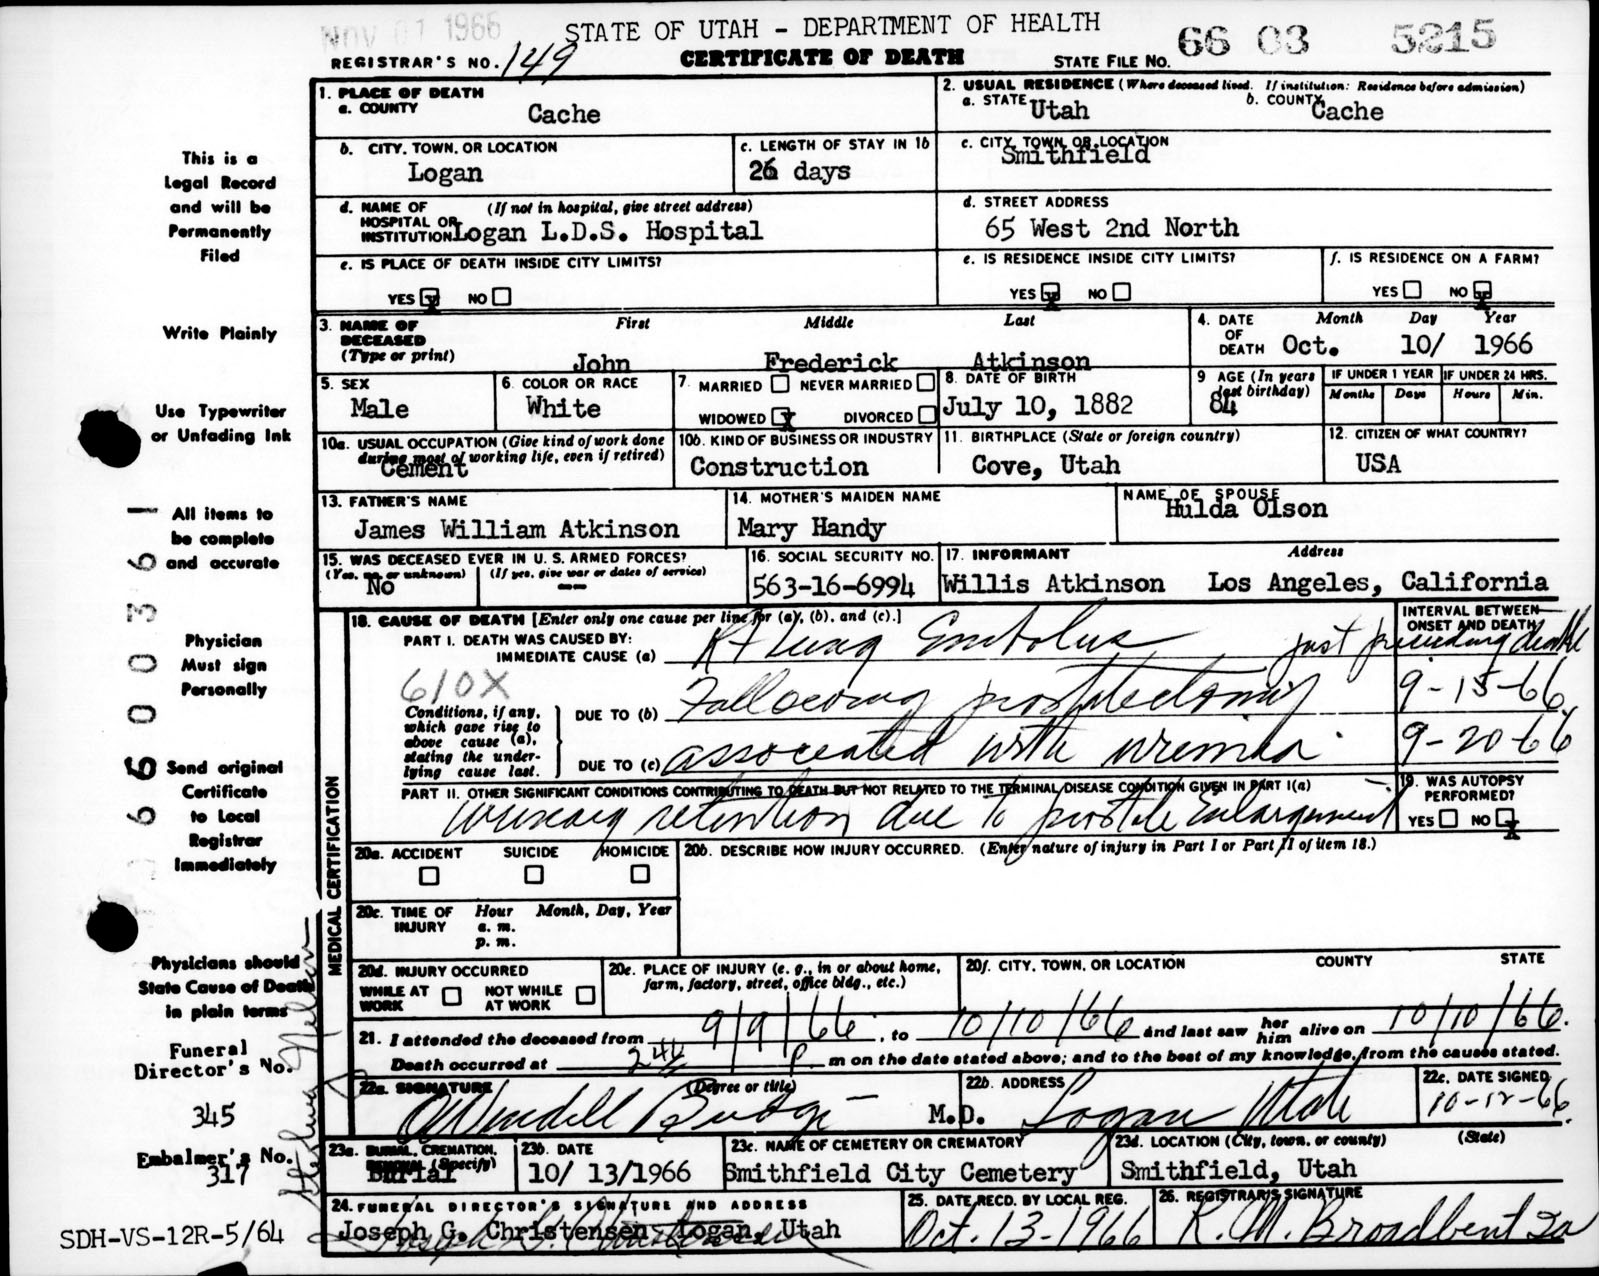 NOV 01 1966
STATE OF UTAH - DEPARTMENT OF HEALTH
REGISTRAR'S NO. 149 CERTIFICATE OF DEATH STATE FILE NO. 66 03 5215
1. PLACE OF DEATH
a. COUNTY Cache
2. USUAL RESIDENCE (Where deceased lived. If institution: Residence before admission)
a. STATE Utah b. COUNTY Cache
b. CITY, TOWN, OR LOCATION Logan
c. LENGTH OF STAY IN 1b 26 days
c. CITY, TOWN, OR LOCATION Smithfield
d. NAME OF HOSPITAL OR INSTITUTION (If not in hospital, give street address) Logan L.D.S. Hospital
d. STREET ADDRESS 65 West 2nd North
e. IS PLACE OF DEATH INSIDE CITY LIMITS?
YES X NO
e. IS RESIDENCE INSIDE CITY LIMITS?
YES X NO
f. IS RESIDENCE ON A FARM?
YES NO X
3. NAME OF DECEASED (Type or print) First Middle Last
John Frederick Atkinson
4. DATE OF DEATH Month Day Year
Oct. 10/ 1966
5. SEX Male
6. COLOR OR RACE White
7. MARRIED NEVER MARRIED
WIDOWED X DIVORCED
8. DATE OF BIRTH July 10, 1882
9 AGE (In years last birthday) 84
IF UNDER 1 YEAR Months Days
IF UNDER 24 HRS. Hours Min.
10a. USUAL OCCUPATION (Give kind of work done during most of working life, even if retired) Cement
10b. KIND OF BUSINESS OR INDUSTRY Construction
11. BIRTHPLACE (State or foreign country) Cove, Utah
12. CITIZEN OF WHAT COUNTRY? USA
13. FATHER'S NAME James William Atkinson
14. MOTHER'S MAIDEN NAME Mary Handy
NAME OF SPOUSE Hulda Olson
15. WAS DECEASED EVER IN U. S. ARMED FORCES?
(Yes, no or unknown) No (If yes, give war or dates of service) --
16. SOCIAL SECURITY NO. 563-16-6994
17. INFORMANT Address
Willis Atkinson Los Angeles, California
MEDICAL CERTIFICATION
18. CAUSE OF DEATH [Enter only one cause per line for (a), (b), and (c).]
INTERVAL BETWEEN ONSET AND DEATH
PART I. DEATH WAS CAUSED BY:
IMMEDIATE CAUSE (a) Rt Lung Embolus just preceding death
610X
Conditions, if any, which gave rise to above cause (a), stating the underlying cause last.
DUE TO (b) Following prostatectomy 9-15-66
DUE TO (c) associated with uremia 9-20-66
PART II. OTHER SIGNIFICANT CONDITIONS CONTRIBUTING TO DEATH BUT NOT RELATED TO THE TERMINAL DISEASE CONDITION GIVEN IN PART I(a)
urinary retention due to prostate Enlargement
19. WAS AUTOPSY PERFORMED?
YES NO X
20a. ACCIDENT SUICIDE HOMICIDE
20b. DESCRIBE HOW INJURY OCCURRED. (Enter nature of injury in Part I or Part II of item 18.)
20c. TIME OF INJURY Hour Month, Day, Year
a. m.
p. m.
20d. INJURY OCCURRED
WHILE AT WORK NOT WHILE AT WORK
20e. PLACE OF INJURY (e. g., in or about home, farm, factory, street, office bldg., etc.)
20f. CITY, TOWN, OR LOCATION COUNTY STATE
21. I attended the deceased from 9/9/66, to 10/10/66 and last saw her him alive on 10/10/66.
Death occurred at 2 44 P. m on the date stated above; and to the best of my knowledge, from the causes stated.
22a. SIGNATURE (Degree or title) O Wendell Budge M.D.
22b. ADDRESS Logan Utah
22c. DATE SIGNED 10-12-66
23a. BURIAL, CREMATION, REMOVAL (Specify) Burial
23b. DATE 10/ 13/1966
23c. NAME OF CEMETERY OR CREMATORY Smithfield City Cemetery
23d. LOCATION (City, town, or county) (State) Smithfield, Utah
24. FUNERAL DIRECTOR'S SIGNATURE AND ADDRESS
Joseph G. Christensen Logan, Utah
25. DATE RECD. BY LOCAL REG. Oct. 13-1966
26. REGISTRAR'S SIGNATURE R. M. Broadbent
This is a
Legal Record
and will be
Permanently
Filed
Write Plainly
Use Typewriter
or Unfading Ink
All items to
be complete
and accurate
Physician
Must sign
Personally
Send original
Certificate
to Local
Registrar
Immediately
Physicians should
State Cause of Death
in plain terms
Funeral
Director's No.
345
Embalmer's No.
317
SDH-VS-12R-5/64